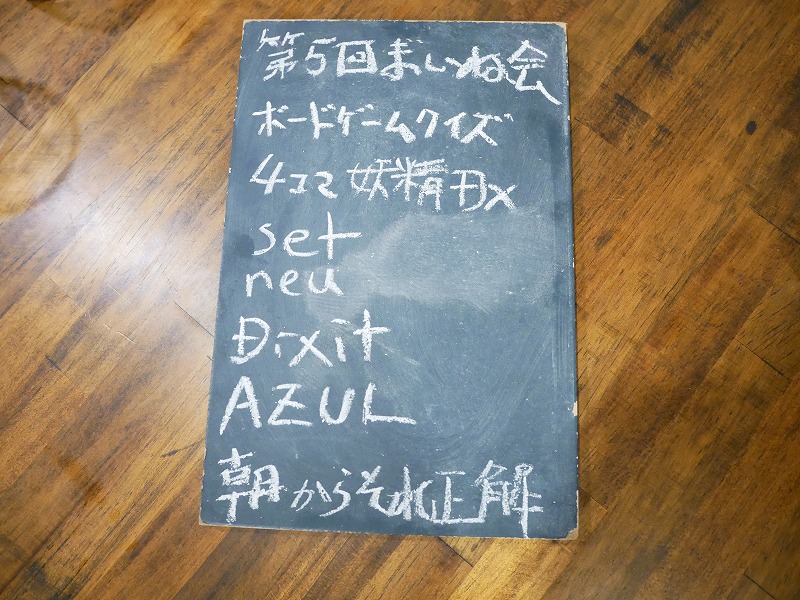 第5回まいね会
ボードゲームクイズ
4コマ妖精DX
set
neu
Dixit
AZUL
朝からそれ正解